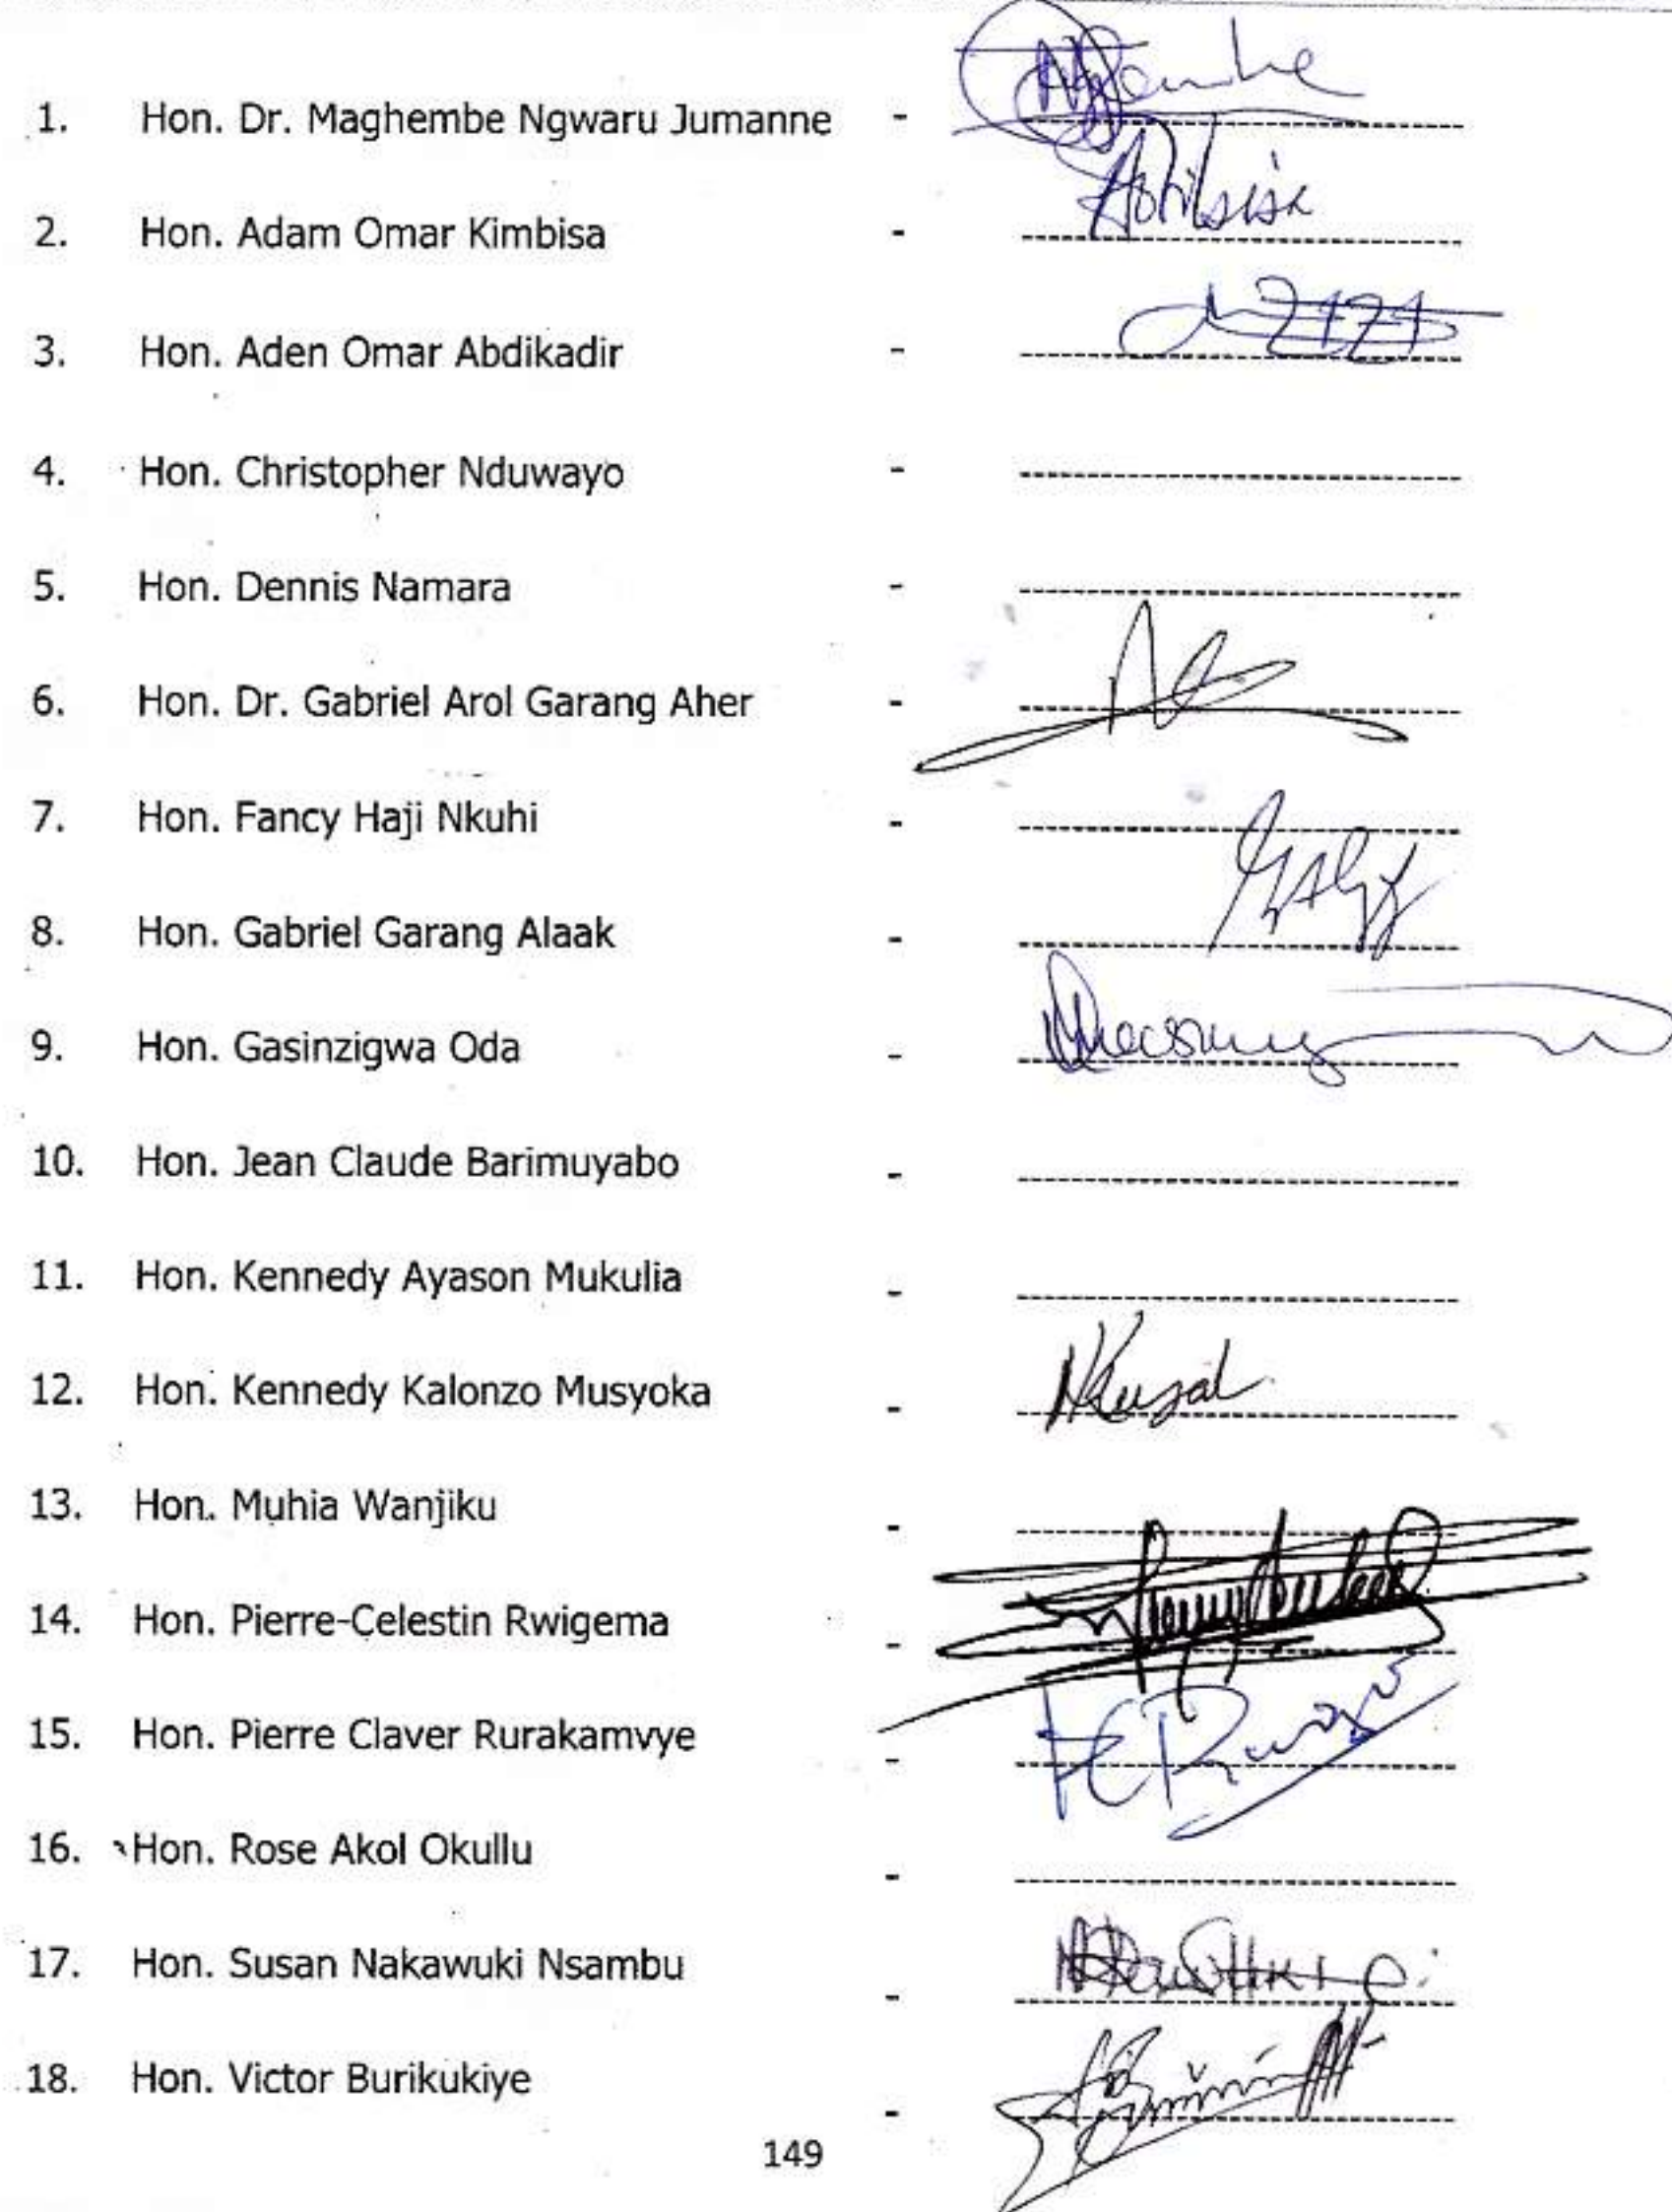 1. Hon. Dr. Maghembe Ngwaru Jumanne -
2. Hon. Adam Omar Kimbisa -
3. Hon. Aden Omar Abdikadir -
4. Hon. Christopher Nduwayo -
5. Hon. Dennis Namara -
6. Hon. Dr. Gabriel Arol Garang Aher -
7. Hon. Fancy Haji Nkuhi -
8. Hon. Gabriel Garang Alaak -
9. Hon. Gasinzigwa Oda -
10. Hon. Jean Claude Barimuyabo -
11. Hon. Kennedy Ayason Mukulia -
12. Hon. Kennedy Kalonzo Musyoka -
13. Hon. Muhia Wanjiku -
14. Hon. Pierre-Celestin Rwigema -
15. Hon. Pierre Claver Rurakamvye -
16. Hon. Rose Akol Okullu -
17. Hon. Susan Nakawuki Nsambu -
18. Hon. Victor Burikukiye -
149